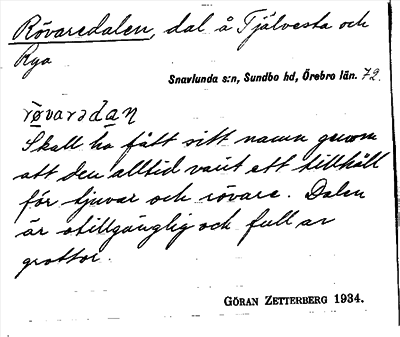 Rövaredalen, dal å Tjälvesta och
Rya
Snavlunda s:n, Sundbo hd, Örebro län. 72.
røvarədan
Skall ha fått sitt namn genom
att den alltid varit ett tillhåll
för tjuvar och rövare. Dalen
är otillgänglig och full av
grottor.
GÖRAN ZETTERBERG 1934.